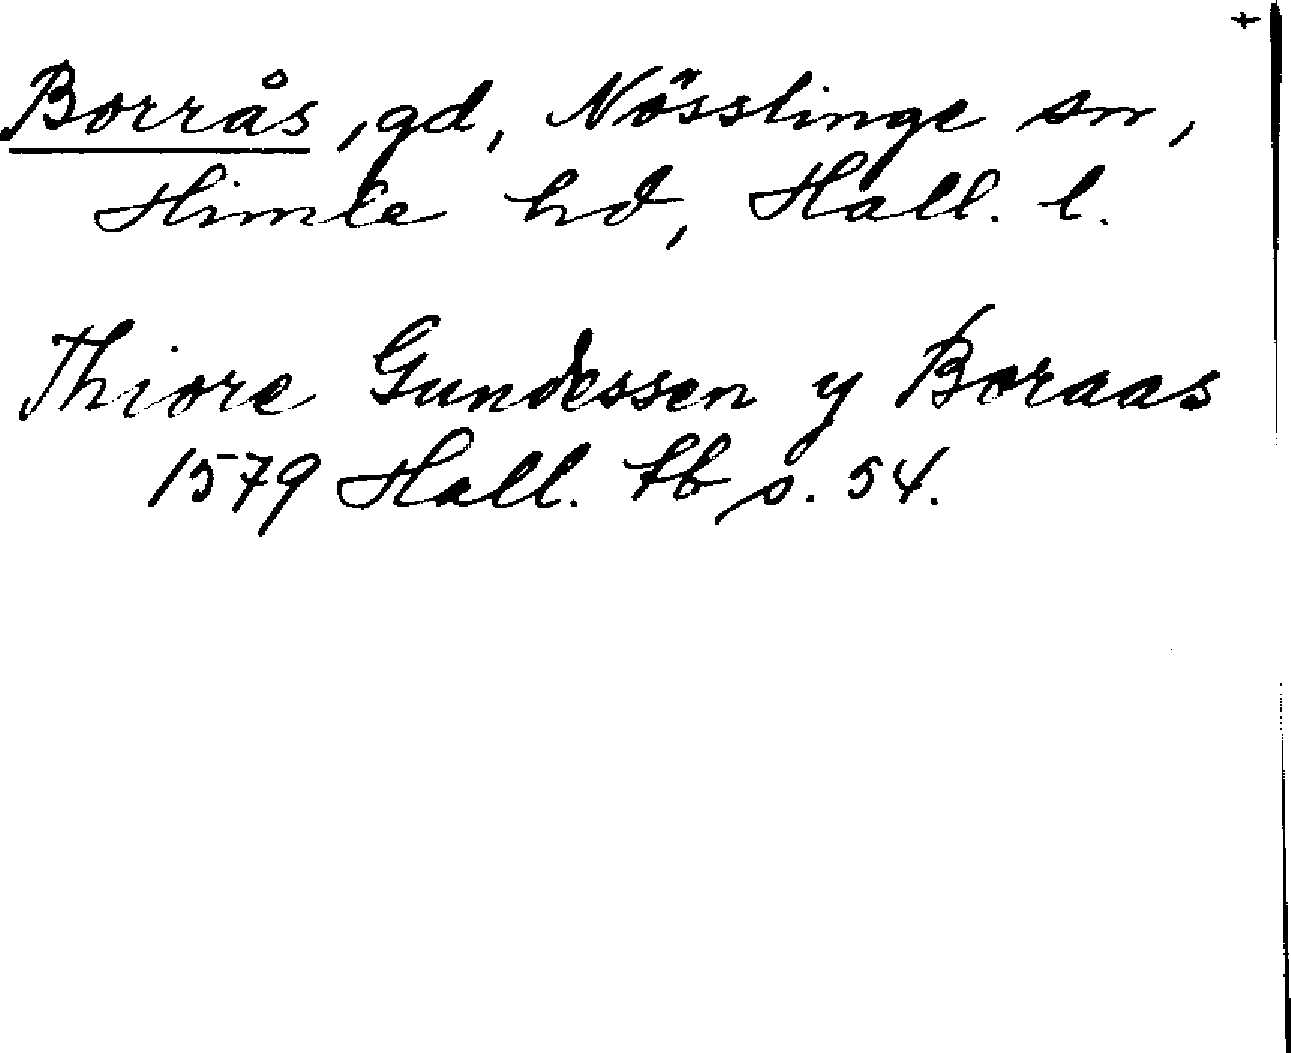 +
Borrås, gd, Nösslinge sn,
Himle hd, Hall. l.
Thiore Gundessen y Boraas
1579 Hall. tb s. 54.